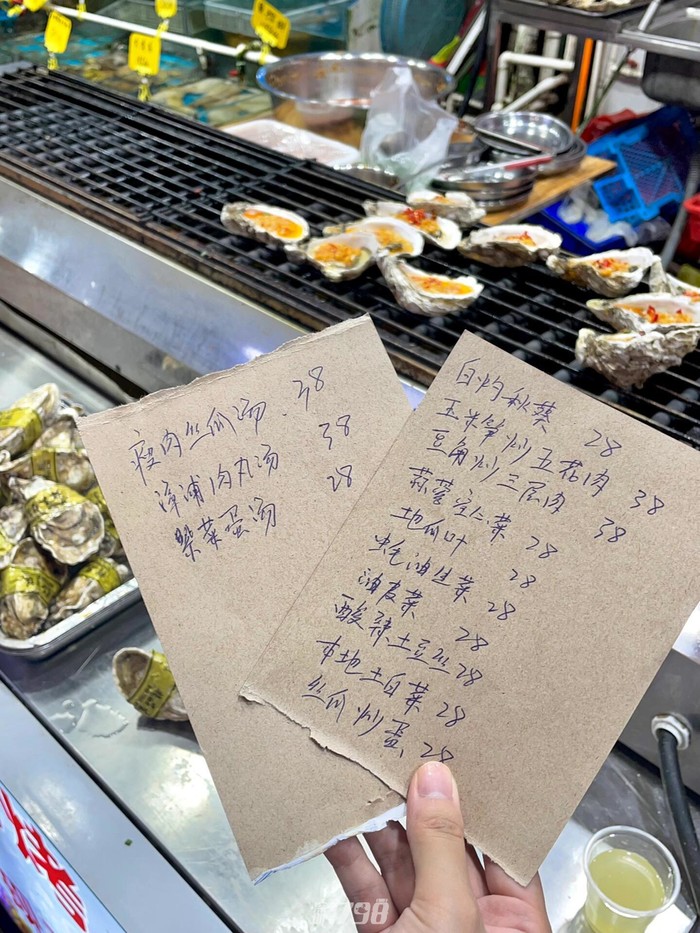 瘦肉丝瓜汤 38
漳浦肉丸汤 38
紫菜蛋汤 28
白灼秋葵 28
玉米笋炒五花肉 38
豆角炒三层肉 38
蒜蓉空心菜 28
地瓜叶 28
蚝油生菜 28
油麦菜 28
酸辣土豆丝 28
本地土白菜 28
丝瓜炒蛋 28
798